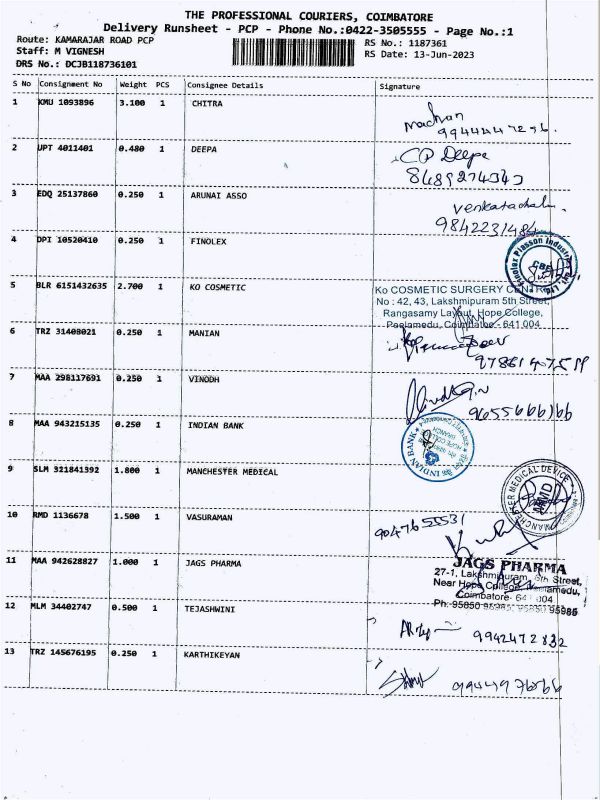 THE PROFESSIONAL COURIERS, COIMBATORE
Delivery Runsheet - PCP - Phone No.:0422-3505555 - Page No.:1
Route: KAMARAJAR ROAD PCP
Staff: M VIGNESH
DRS No.: DCJB118736101
RS No.: 1187361
RS Date: 13-Jun-2023
S No Consignment No Weight PCS Consignee Details Signature
1 KMU 1093896 3.100 1 CHITRA
2 UPT 4011401 0.480 1 DEEPA
CP Deepa
3 EDQ 25137860 0.250 1 ARUNAI ASSO
Venkatachalam.
4 DPI 10520410 0.250 1 FINOLEX
Finolex Plasson Industries Pvt. Ltd.
CBE
5 BLR 6151432635 2.700 1 KO COSMETIC
Ko COSMETIC SURGERY CENTRE
No : 42, 43, Lakshmipuram 5th Street,
Rangasamy Layout, Hope College,
Peelamedu, Coimbatore - 641 004
6 TRZ 31408021 0.250 1 MANIAN
7 MAA 298117691 0.250 1 VINODH
9655666166
8 MAA 943215135 0.250 1 INDIAN BANK
INDIAN BANK
9 SLM 321841392 1.800 1 MANCHESTER MEDICAL
MANCHESTER MEDICAL DEVICE
10 RMD 1136678 1.500 1 VASURAMAN
9047655531
11 MAA 942628827 1.000 1 JAGS PHARMA
JAGS PHARMA
27-1, Lakshmipuram, 6th Street,
Near Hope College, Peelamedu,
Coimbatore- 641 004
12 MLM 34402747 0.500 1 TEJASHWINI
9942472832
13 TRZ 145676195 0.250 1 KARTHIKEYAN